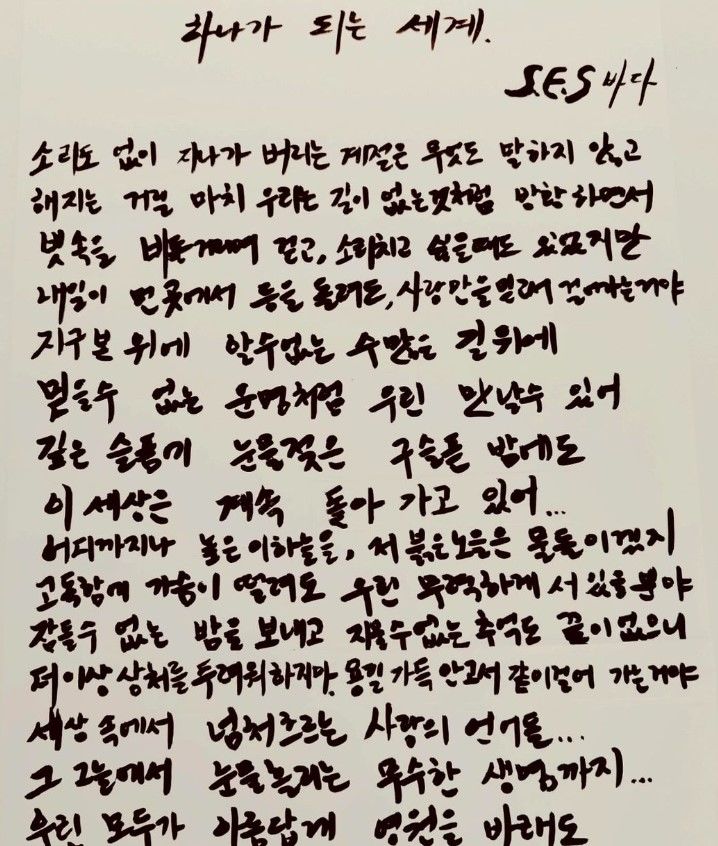 하나가 되는 세계.
S.E.S 바다
소리도 없이 지나가 버리는 계절은 무엇도 말하지 않고
해지는 거릴 마치 우리는 길이 없는것처럼 방황하면서
빗속을 비틀거리며 걷고, 소리치고 싶을때도 있었지만
내일이 먼 곳에서 등을 돌려도, 사랑만을 믿으며 걸어가는거야
지구본 위에 알수없는 수많은 길위에
믿을수 없는 운명처럼 우린 만날수 있어
깊은 슬픔에 눈물젖은 구슬픈 밤에도
이 세상은 계속 돌아 가고 있어...
어디까지나 높은 이하늘을, 저 붉은노을은 물들이겠지
고독함에 가슴이 떨려도 우린 무력하게 서 있을 뿐야
잠들수 없는 밤을 보내고 지울수없는 추억도 끝이없으니
더이상 상처를 두려워하지마, 용길 가득 안고서 같이걸어 가는거야
세상 속에서 넘쳐흐르는 사랑의 언어들...
그 그늘에서 눈물흘리는 무수한 생명까지...
우린 모두가 아름답게 영원을 바래도